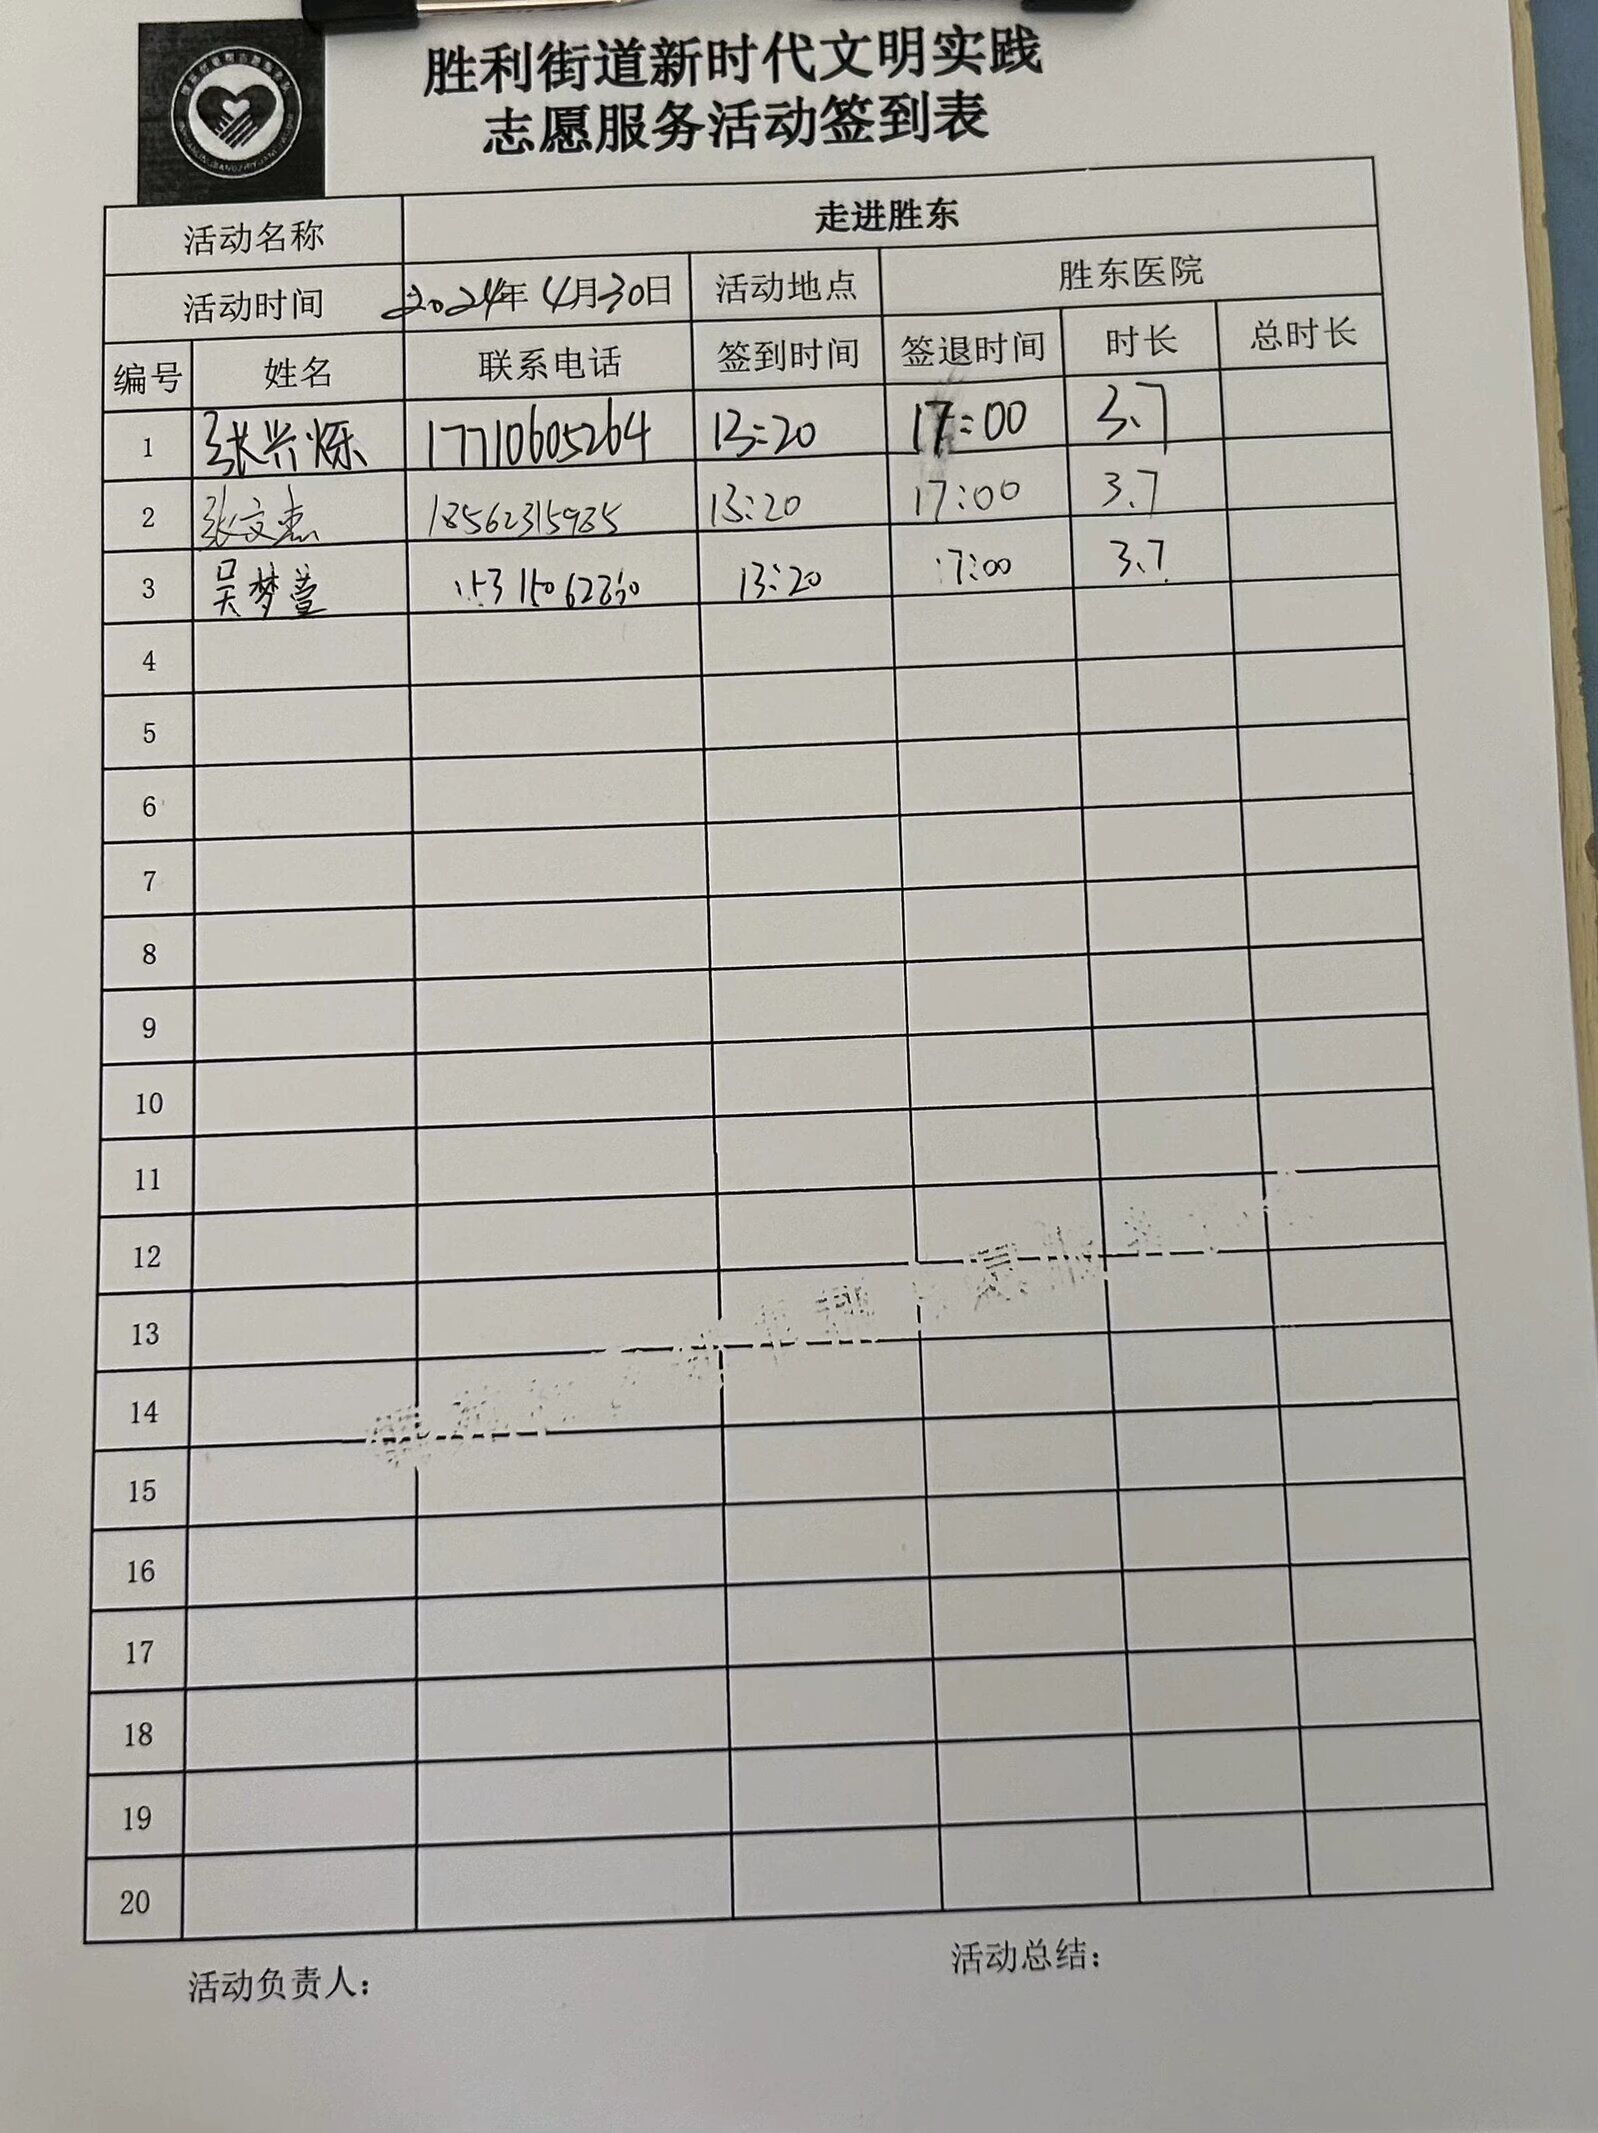 胜利街道新时代文明实践
志愿服务活动签到表
活动名称 走进胜东
活动时间 2024年4月30日 活动地点 胜东医院
编号 姓名 联系电话 签到时间 签退时间 时长 总时长
1 张兴烁 17710605264 13:20 17:00 3.7
2 张文杰 18562315985 13:20 17:00 3.7
3 吴梦萱 15315062830 13:20 17:00 3.7
4
5
6
7
8
9
10
11
12
13
14
15
16
17
18
19
20
活动负责人： 活动总结：